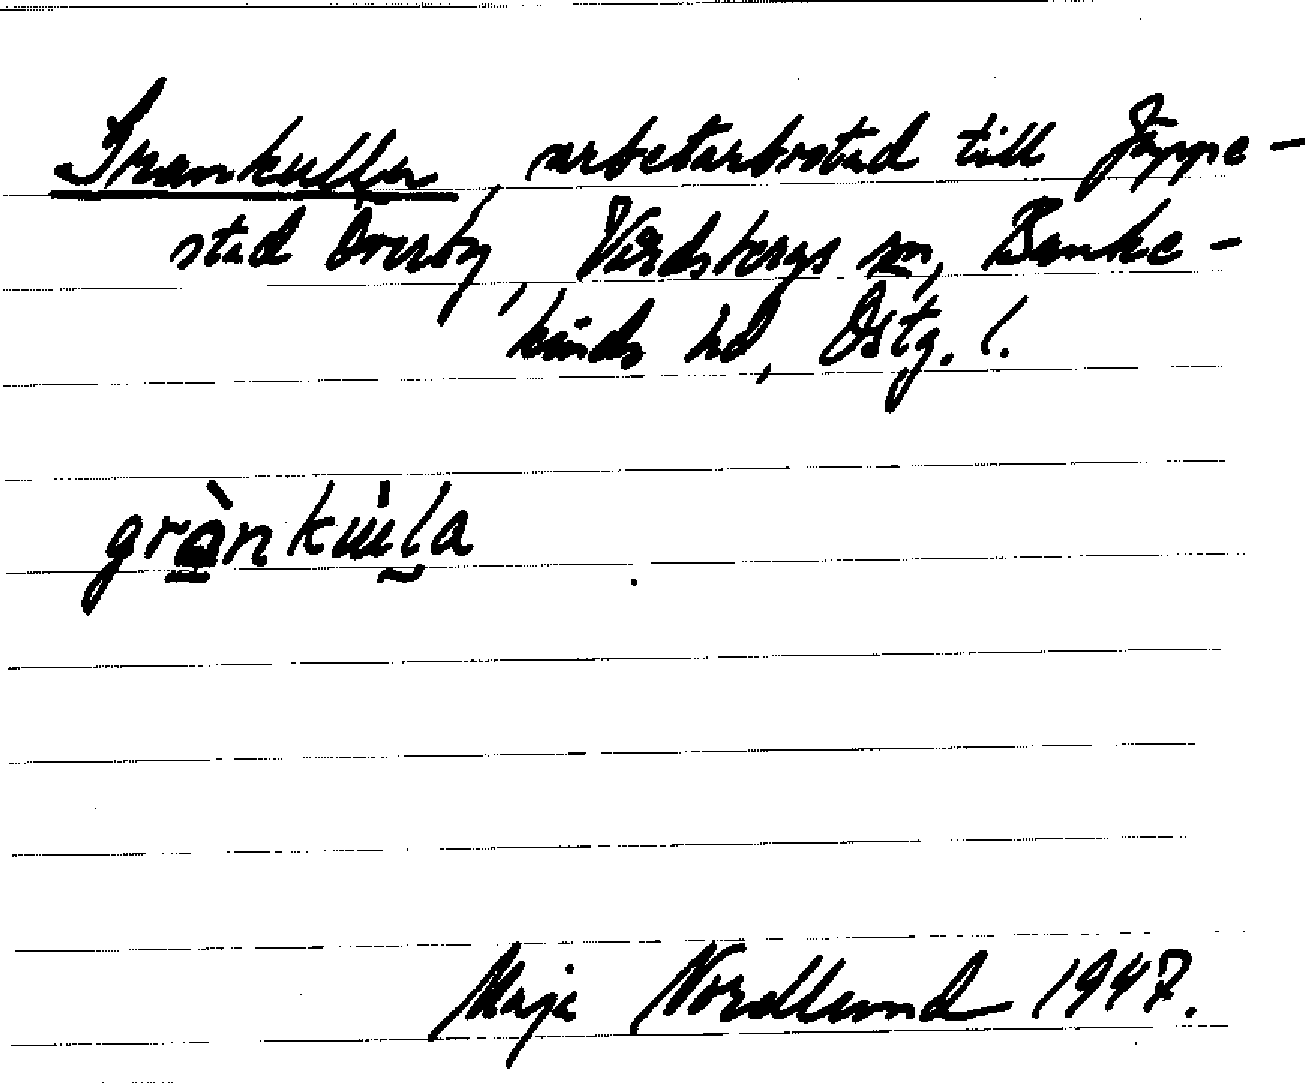 Grankullen, arbetarbostad till Jäppe-
stad Överby, Vårdsbergs sn, Banke-
kinds hd, Östg. l.
grànkùla
Maja Nordlund 1947.